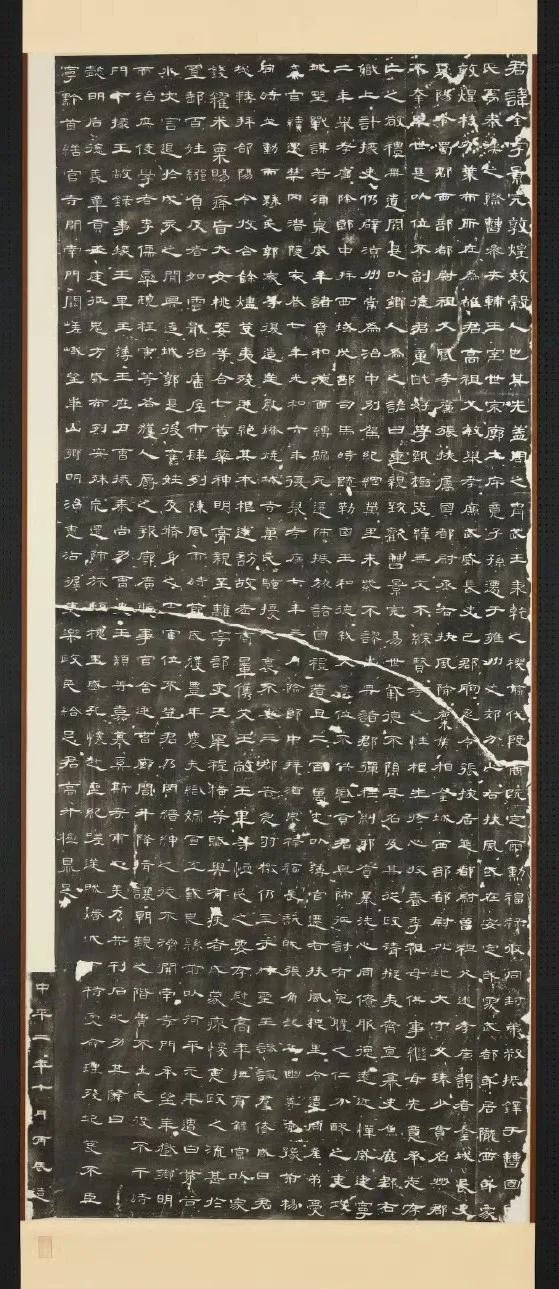 君諱全字景完敦煌效穀人也其先蓋周之胄武王秉乾之機翦伐殷商既定爾勳福祿攸同封弟叔振鐸于曹國因
氏焉秦漢之際曹參夾輔王室世宗廓土斥竟子孫遷于雍州之郊分止右扶風或在安定或處武都或居隴西或家
敦煌枝分葉布所在為雄君高祖父敏舉孝廉武威長史巴郡朐忍令張掖居延都尉曾祖父述孝廉謁者金城長史
夏陽令蜀郡西部都尉祖父鳳孝廉張掖屬國都尉丞右扶風隃麋侯相金城西部都尉北地大守父琫少貫名州郡
不幸早世是以位不副德君童齔好學甄極毖緯無文不綜賢孝之性根生於心收養季祖母供事繼母先意承志存
亡之敬禮無遺闕是以鄉人為之諺曰重親致歡曹景完易世載德不隕其名及其從政清擬夷齊直慕史魚歷郡右
職上計掾史仍辟涼州常為治中別駕紀綱萬里朱紫不謬出典諸郡彈枉糾邪貪暴洗心同僚服德遠近憚威建寧
二年舉孝廉除郎中拜西域戊部司馬時疏勒國王和德弒父篡位不供職貢君興師征討有兗膿之仁分醪之惠攻
城野戰謀若涌泉威牟諸賁和德面縛歸死還師振旅諸國禮遺且二百萬悉以薄官遷右扶風槐里令遭同產弟憂
棄官續遇禁冈潛隱家巷七年光和六年復舉孝廉七年三月除郎中拜酒泉祿福長訞賊張角起兵幽冀兗豫荊楊
同時並動而縣民郭家等復造逆亂燔燒城寺萬民騷擾人裹不安三郡告急羽檄仍至于時聖主諮諏群僚咸曰君
哉轉拜郃陽令收合餘燼芟夷殘迸絕其本根遂訪故老商量俊艾王敞王畢等恤民之要存慰高年撫育鰥寡以家
錢糴米粟賜癃盲大女桃婓等合七首藥神明膏親至離亭部吏王宰程橫等賦與有疾者咸蒙瘳悛惠政之流甚於
置郵百姓繈負反者如雲戢治廧屋市肆列陳風雨時節歲獲豐年農夫織婦百工戴恩縣前以河平元年遭白茅谷
水灾害退於戊亥之間興造城郭是後舊姓及脩身之士官位不登君乃閔縉紳之徒不濟開南寺門承望華嶽鄉明
而治庶使學者李儒欒規程寅等各獲人爵之報廓廣聽事官舍廷曹廊閤升降揖讓朝覲之階費不出民役不干時
門下掾王敞錄事掾王畢主薄王歷戶曹掾秦尚功曹史王顓等嘉慕奚斯考甫之美乃共刊石紀功其辭曰
懿明后德義章貢王庭征鬼方威布烈安殊巟還師旅臨槐里感孔懷赴喪紀嗟逆賊燔城市特受命理殘圮芟不臣
寧黔首繕官寺開南門闕嵯峨望華山鄉明治惠沾渥吏樂政民給足君高升極鼎足
中平二年十月丙辰造